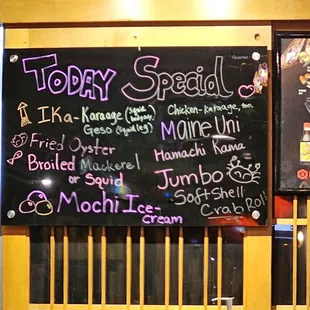 TODAY Special
IKa-Karaage (squid body only)
Geso (squid leg)
Fried Oyster
Broiled Mackerel
or Squid
Mochi Ice-
cream
Chicken-karaage, too.
Maine Uni
Hamachi Kama
Jumbo
Soft Shell
Crab Roll